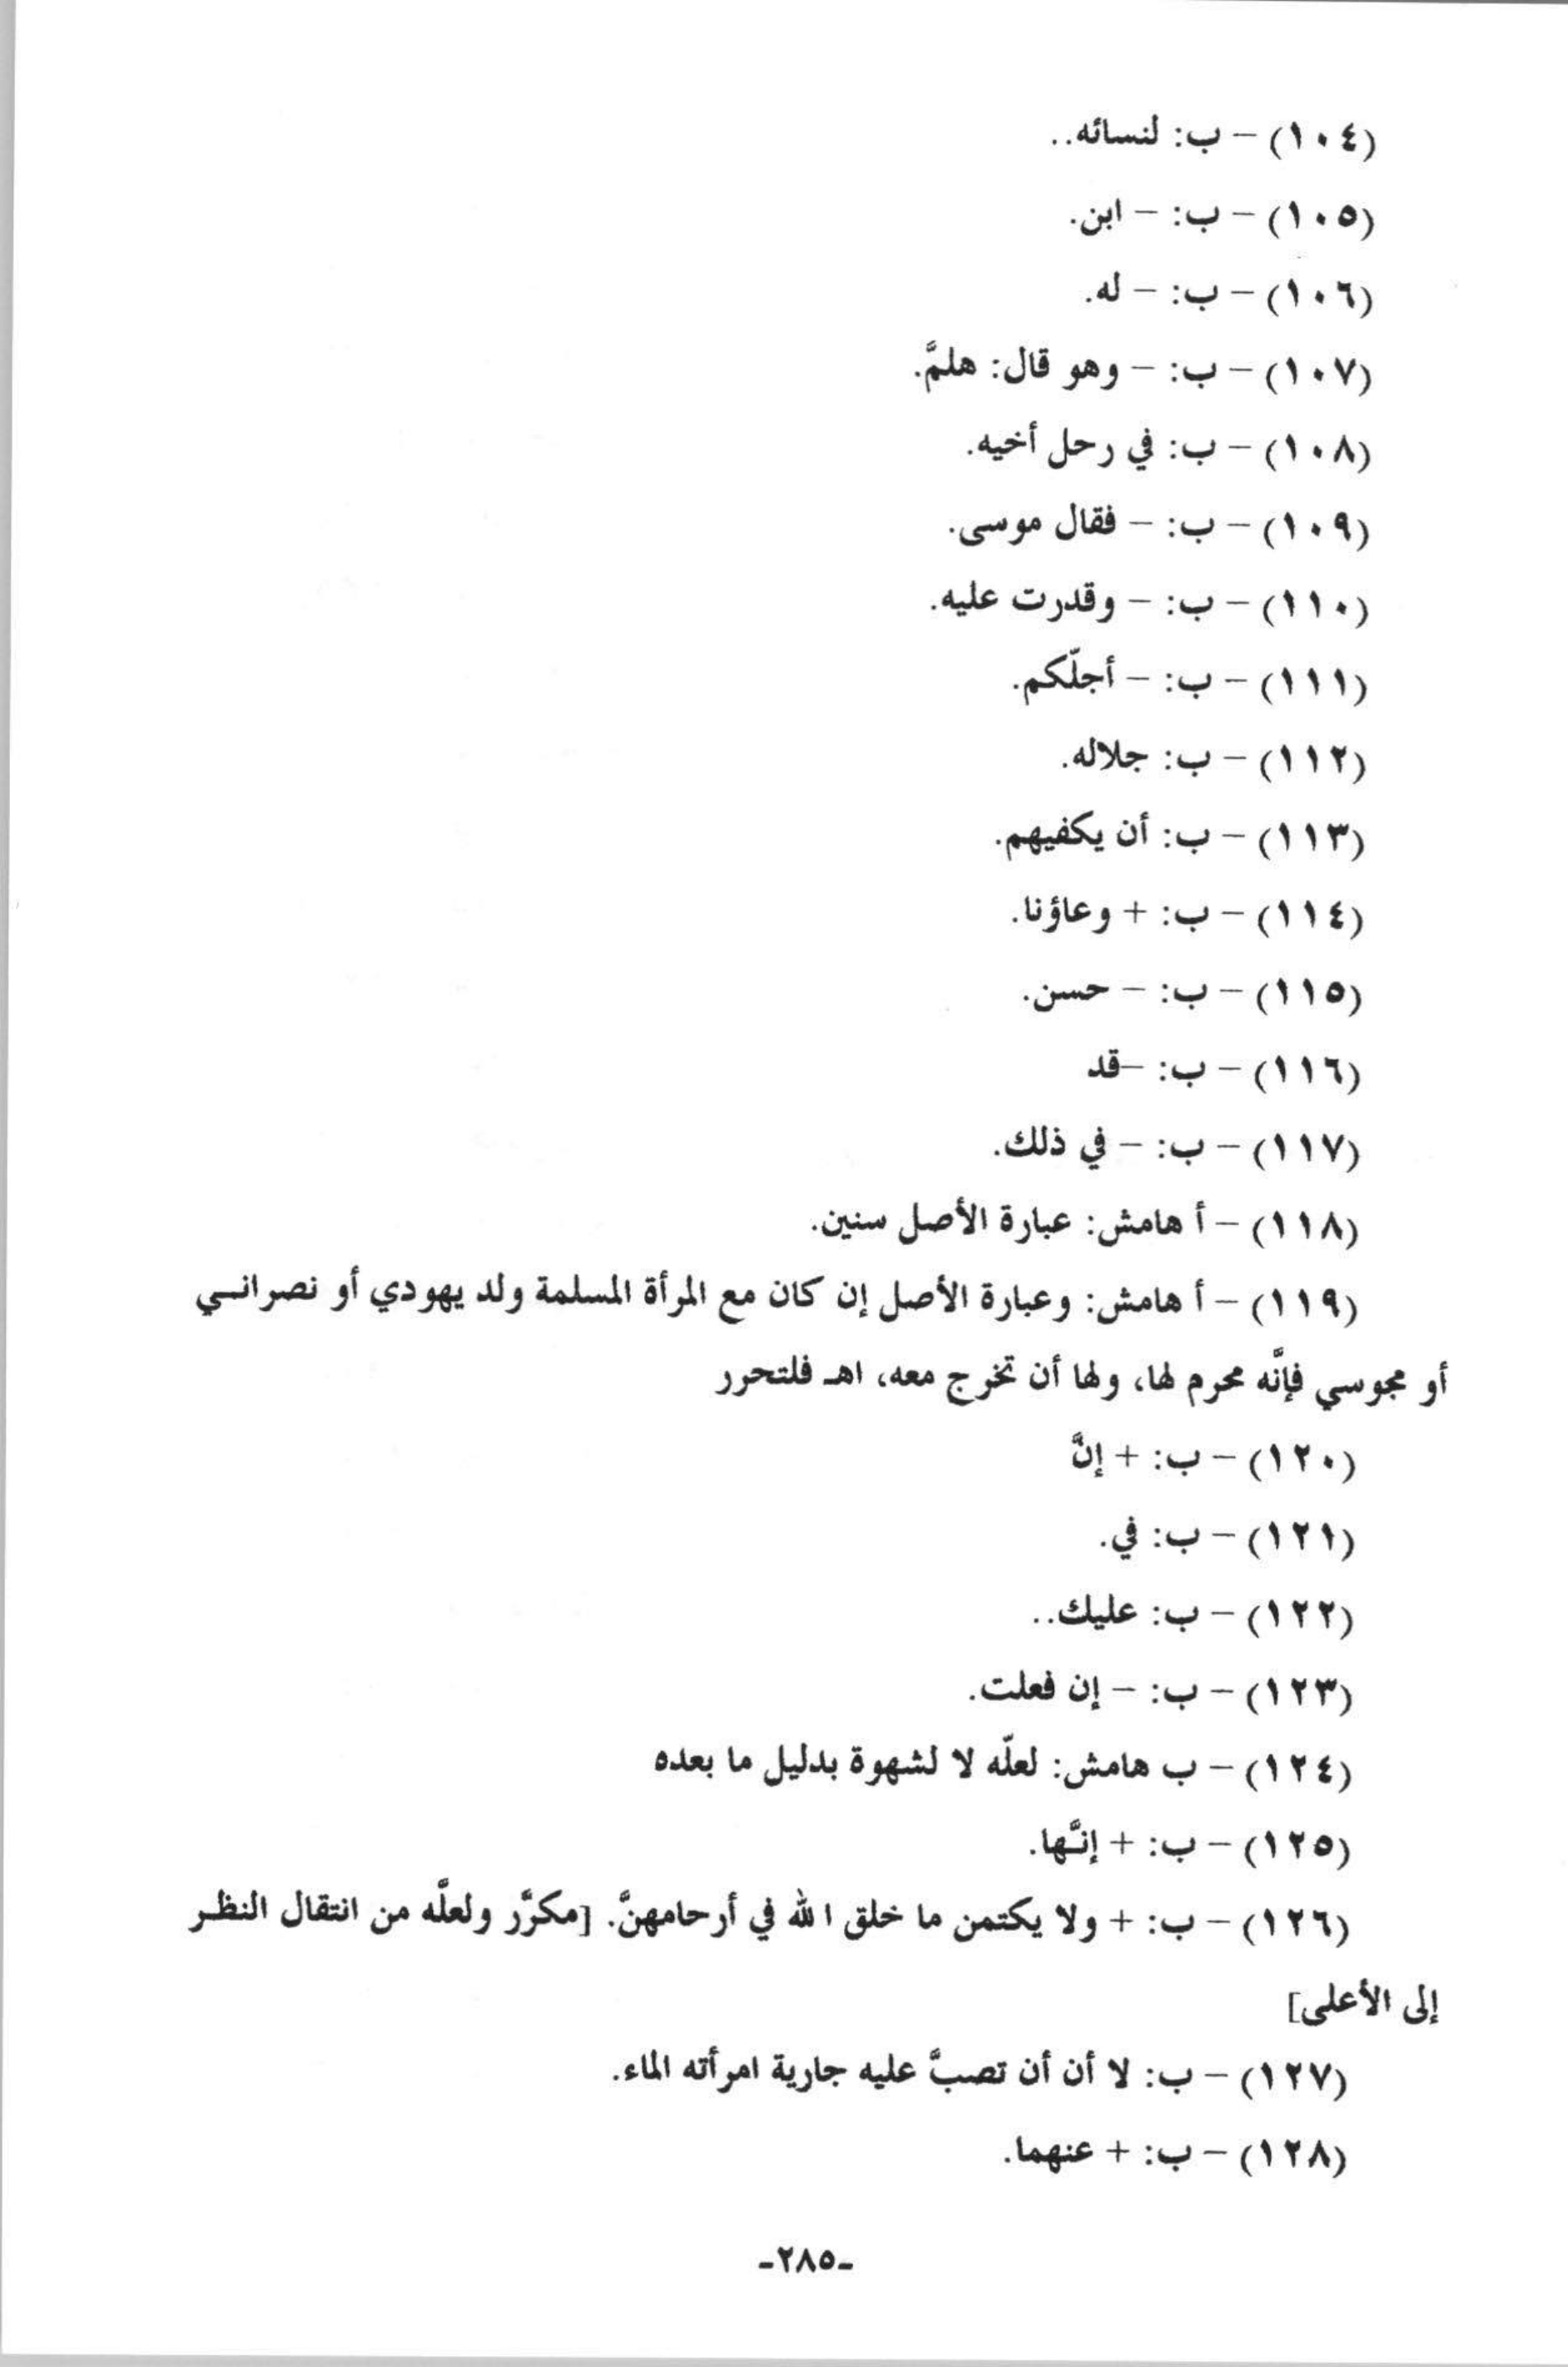 (١٠٤) – ب: لنسائه..
(١٠٥) – ب: – ابن.
(١٠٦) – ب: – له.
(١٠٧) – ب: – وهو قال: هلمَّ.
(١٠٨) – ب: في رحل أخيه.
(١٠٩) – ب: – فقال موسى.
(١١٠) – ب: – وقدرت عليه.
(١١١) – ب: – أجلّكم.
(١١٢) – ب: جلاله.
(١١٣) – ب: أن يكفيهم.
(١١٤) – ب: + وعاؤنا.
(١١٥) – ب: – حسن.
(١١٦) – ب: –قد
(١١٧) – ب: – في ذلك.
(١١٨) – أ هامش: عبارة الأصل سنين.
(١١٩) – أ هامش: وعبارة الأصل إن كان مع المرأة المسلمة ولد يهودي أو نصراني
أو مجوسي فإنَّه محرم لها، ولها أن تخرج معه، اهـ فلتحرر
(١٢٠) – ب: + إنَّ
(١٢١) – ب: في.
(١٢٢) – ب: عليك..
(١٢٣) – ب: – إن فعلت.
(١٢٤) – ب هامش: لعلّه لا لشهوة بدليل ما بعده
(١٢٥) – ب: + إنَّها.
(١٢٦) – ب: + ولا يكتمن ما خلق الله في أرحامهنَّ. [مكرَّر ولعلَّه من انتقال النظر
إلى الأعلى]
(١٢٧) – ب: لا أن أن تصبَّ عليه جارية امرأته الماء.
(١٢٨) – ب: + عنهما.
-٢٨٥-